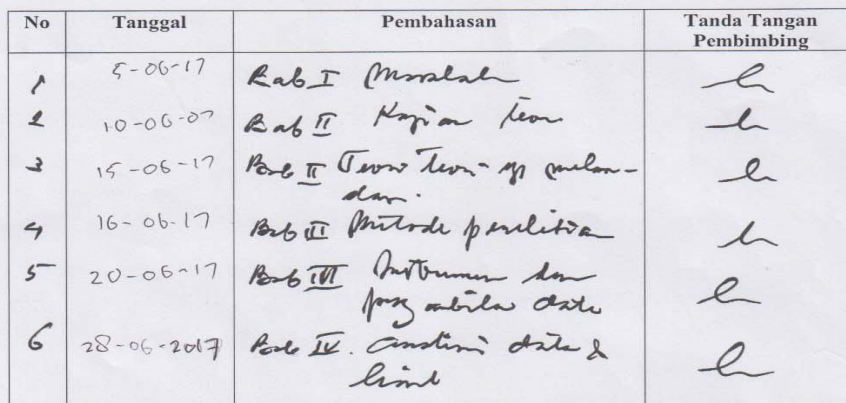 No Tanggal Pembahasan Tanda Tangan
Pembimbing
1 5-06-17 Bab I Masalah
2 10-06-07 Bab II Kajian teori
3 15-06-17 Bab II Teori teori yg melan-
dasi.
4 16-06-17 Bab III Metode penelitian
5 20-06-17 Bab III Instrumen dan
data
6 28-06-2017 Bab IV. data &